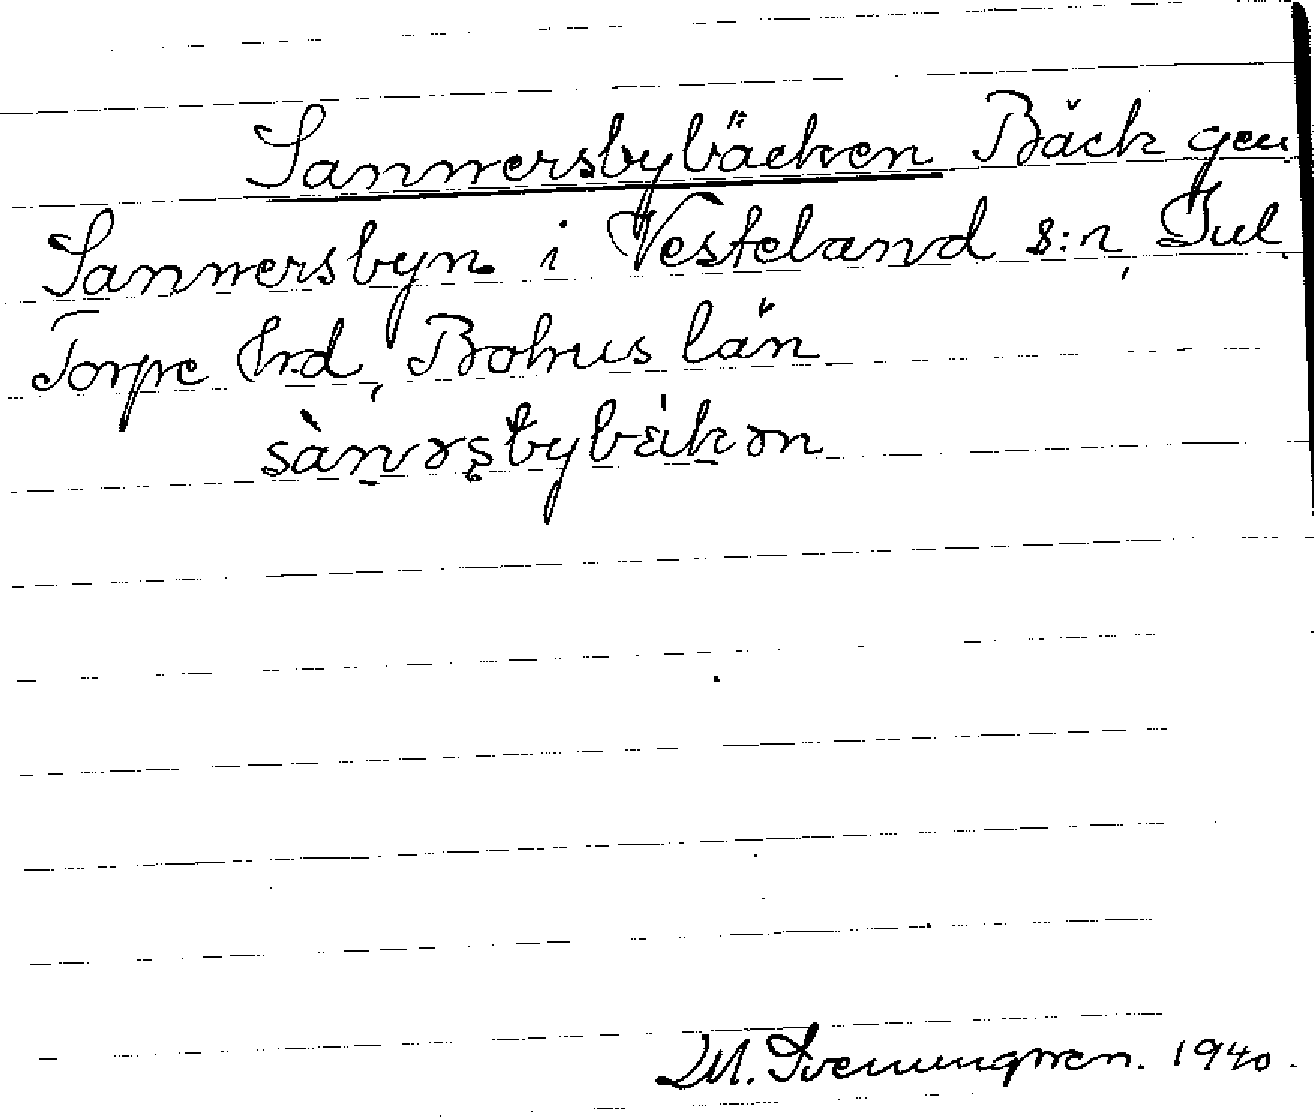 Sannersbybäcken Bäck gen
Sannersbyn i Vesteland s:n, Jul
Torpe hrd, Bohus län
sànərsbybäkən
M. Sveningren. 1940.